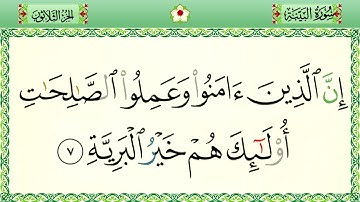 سُورَةُ البَيِّنَةِ
الجُزءُ الثَّلَاثُونَ
إِنَّ ٱلَّذِينَ ءَامَنُوا۟ وَعَمِلُوا۟ ٱلصَّـٰلِحَـٰتِ
أُو۟لَـٰٓئِكَ هُمْ خَيْرُ ٱلْبَرِيَّةِ ﴿٧﴾